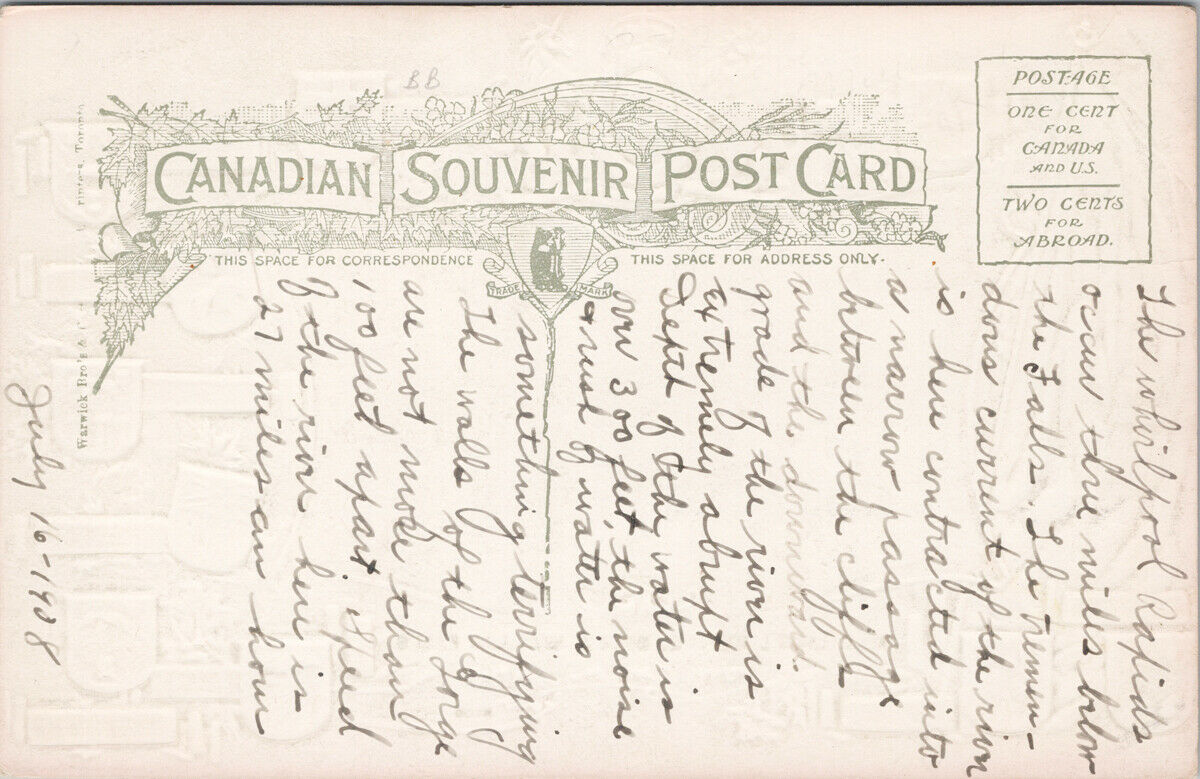 BB
CANADIAN SOUVENIR POST CARD
POSTAGE
ONE CENT
FOR
CANADA
AND U.S.
TWO CENTS
FOR
ABROAD.
THIS SPACE FOR CORRESPONDENCE
THIS SPACE FOR ADDRESS ONLY.
TRADE MARK
Warwick Bro's &
The whirlpool Rapids
occur three miles below
the Falls. The tremen-
dous current of the river
is here contracted into
a narrow passage
between the cliffs
and the downward
grade of the river is
extremely abrupt
Depth of the water is
over 300 feet, the noise
&rush of water is
something terrifying
The walls of the Gorge
are not more than
100 feet apart. Speed
of the river here is
27 miles an hour
July 16-1908